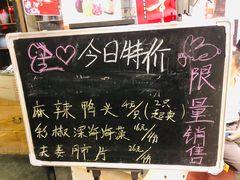 今日特价
麻辣鸭头 4元/个(2只起卖)
彩椒深海海藻 16元/份
夫妻肺片 26元/份
限量销售